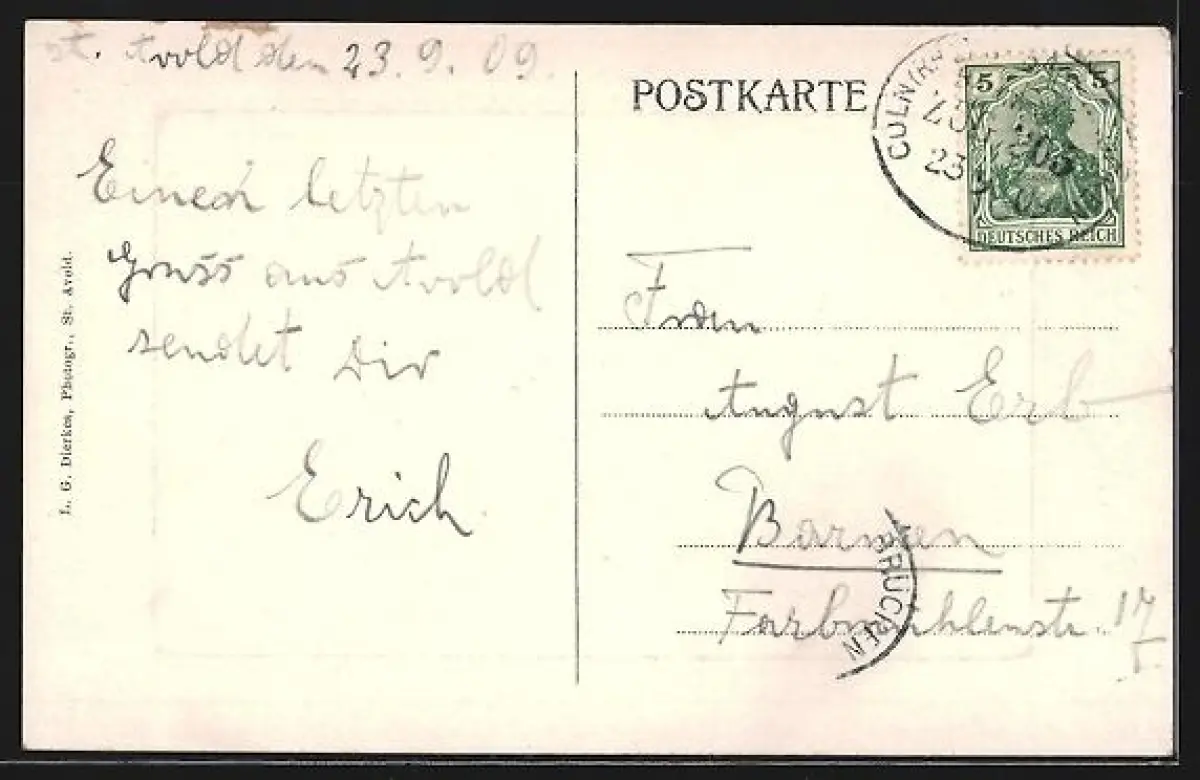 St. Avold den 23.9.09.
Einen letzten
Gruss aus Avold
sendet Dir
Erich
L. G. Dierkes, Photogr., St. Avold.
POSTKARTE
5 5
DEUTSCHES REICH
CÖLN
ZUG 205
23 9
August Erb
Barmen
Farbmühlenstr. 17
BRÜCKEN